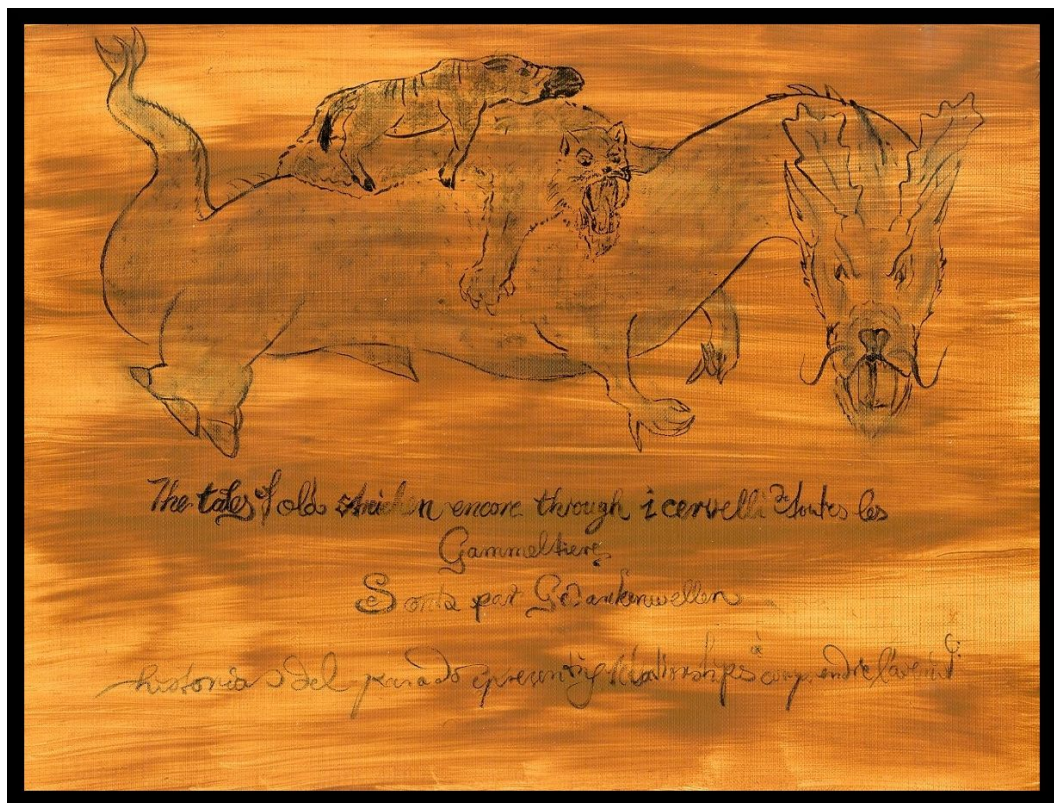 The tales of old streichen encore through i cervelli de toutes les
Gammeltiere
Sonta par Gedankenwellen
historia del pasado relationships à comprendre l'avenir